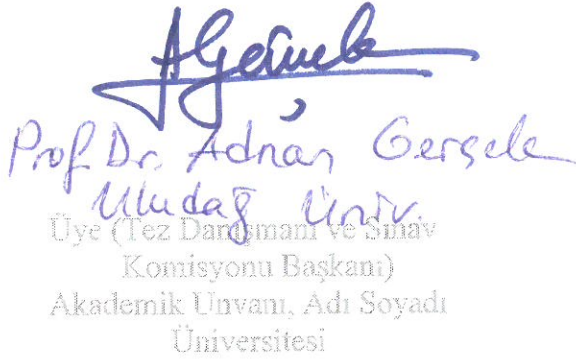 Prof. Dr. Adnan Gerçek
Uludağ Üniv.
Üye (Tez Danışmanı ve Sınav
Komisyonu Başkanı)
Akademik Unvanı, Adı Soyadı
Üniversitesi